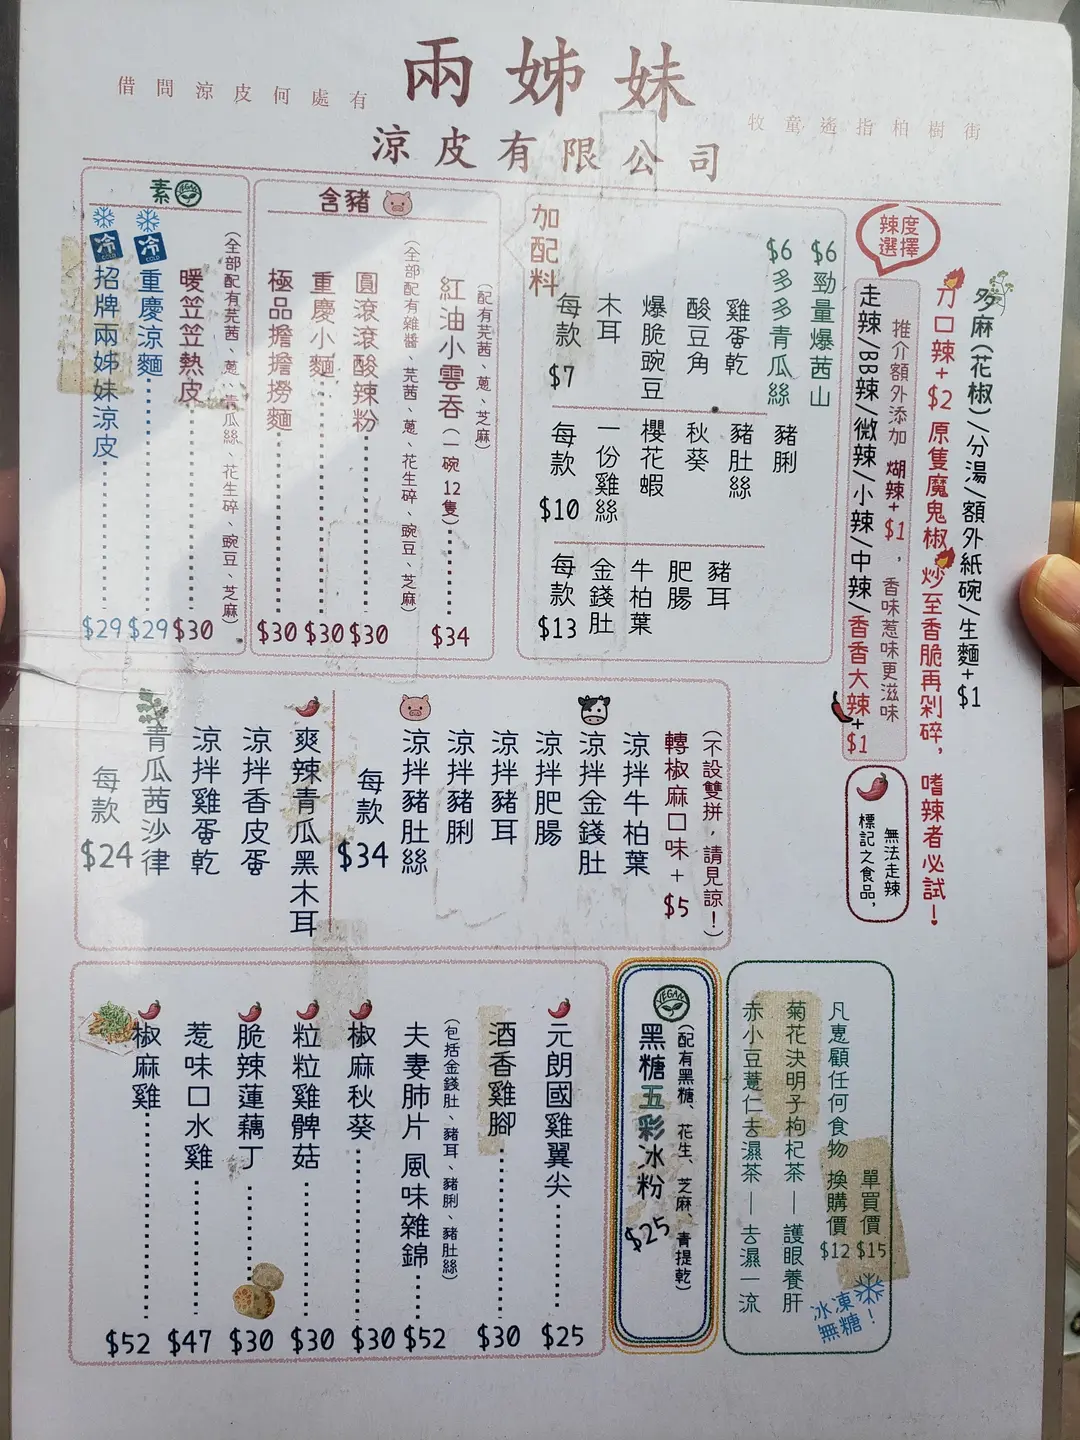 兩姊妹
借問涼皮何處有
牧童遙指柏樹街
涼皮有限公司
素 VEGAN
冷 COLD 招牌兩姊妹涼皮 $29
冷 COLD 重慶涼麵 $29
暖笠笠熱皮 $30
(全部配有芫茜、蔥、青瓜絲、花生碎、豌豆、芝麻)
含豬
極品擔擔撈麵 $30
重慶小麵 $30
圓滾滾酸辣粉 $30
(全部配有雜醬、芫茜、蔥、花生碎、豌豆、芝麻)
紅油小雲吞(一碗12隻) $34
(配有芫茜、蔥、芝麻)
加配料
每款 $7
木耳
爆脆豌豆
酸豆角
雞蛋乾
$6 多多青瓜絲
$6 勁量爆茜山
每款 $10
一份雞絲
櫻花蝦
秋葵
豬肚絲
豬脷
每款 $13
金錢肚
牛柏葉
肥腸
豬耳
辣度選擇
走辣/BB辣/微辣/小辣/中辣/香香大辣+$1
推介額外添加 煳辣+$1，香味惹味更滋味
加口辣+$2 原隻魔鬼椒炒至香脆再剁碎，嗜辣者必試！
多麻(花椒)/分湯/額外紙碗/生麵+$1
無法走辣
標記之食品，
每款 $24
青瓜茜沙律
涼拌雞蛋乾
涼拌香皮蛋
爽辣青瓜黑木耳
每款 $34
涼拌豬肚絲
涼拌豬脷
涼拌豬耳
涼拌肥腸
涼拌金錢肚
涼拌牛柏葉
轉椒麻口味+$5
(不設雙拼，請見諒！)
椒麻雞 $52
惹味口水雞 $47
脆辣蓮藕丁 $30
粒粒雞髀菇 $30
椒麻秋葵 $30
夫妻肺片 風味雜錦 $52
(包括金錢肚、豬耳、豬脷、豬肚絲)
酒香雞腳 $30
元朗國雞翼尖 $25
VEGAN
黑糖五彩冰粉 $25
(配有黑糖、花生、芝麻、青提乾)
凡惠顧任何食物 換購價 $12
單買價 $15
菊花決明子枸杞茶—護眼養肝
赤小豆薏仁去濕茶—去濕一流
冰凍無糖！